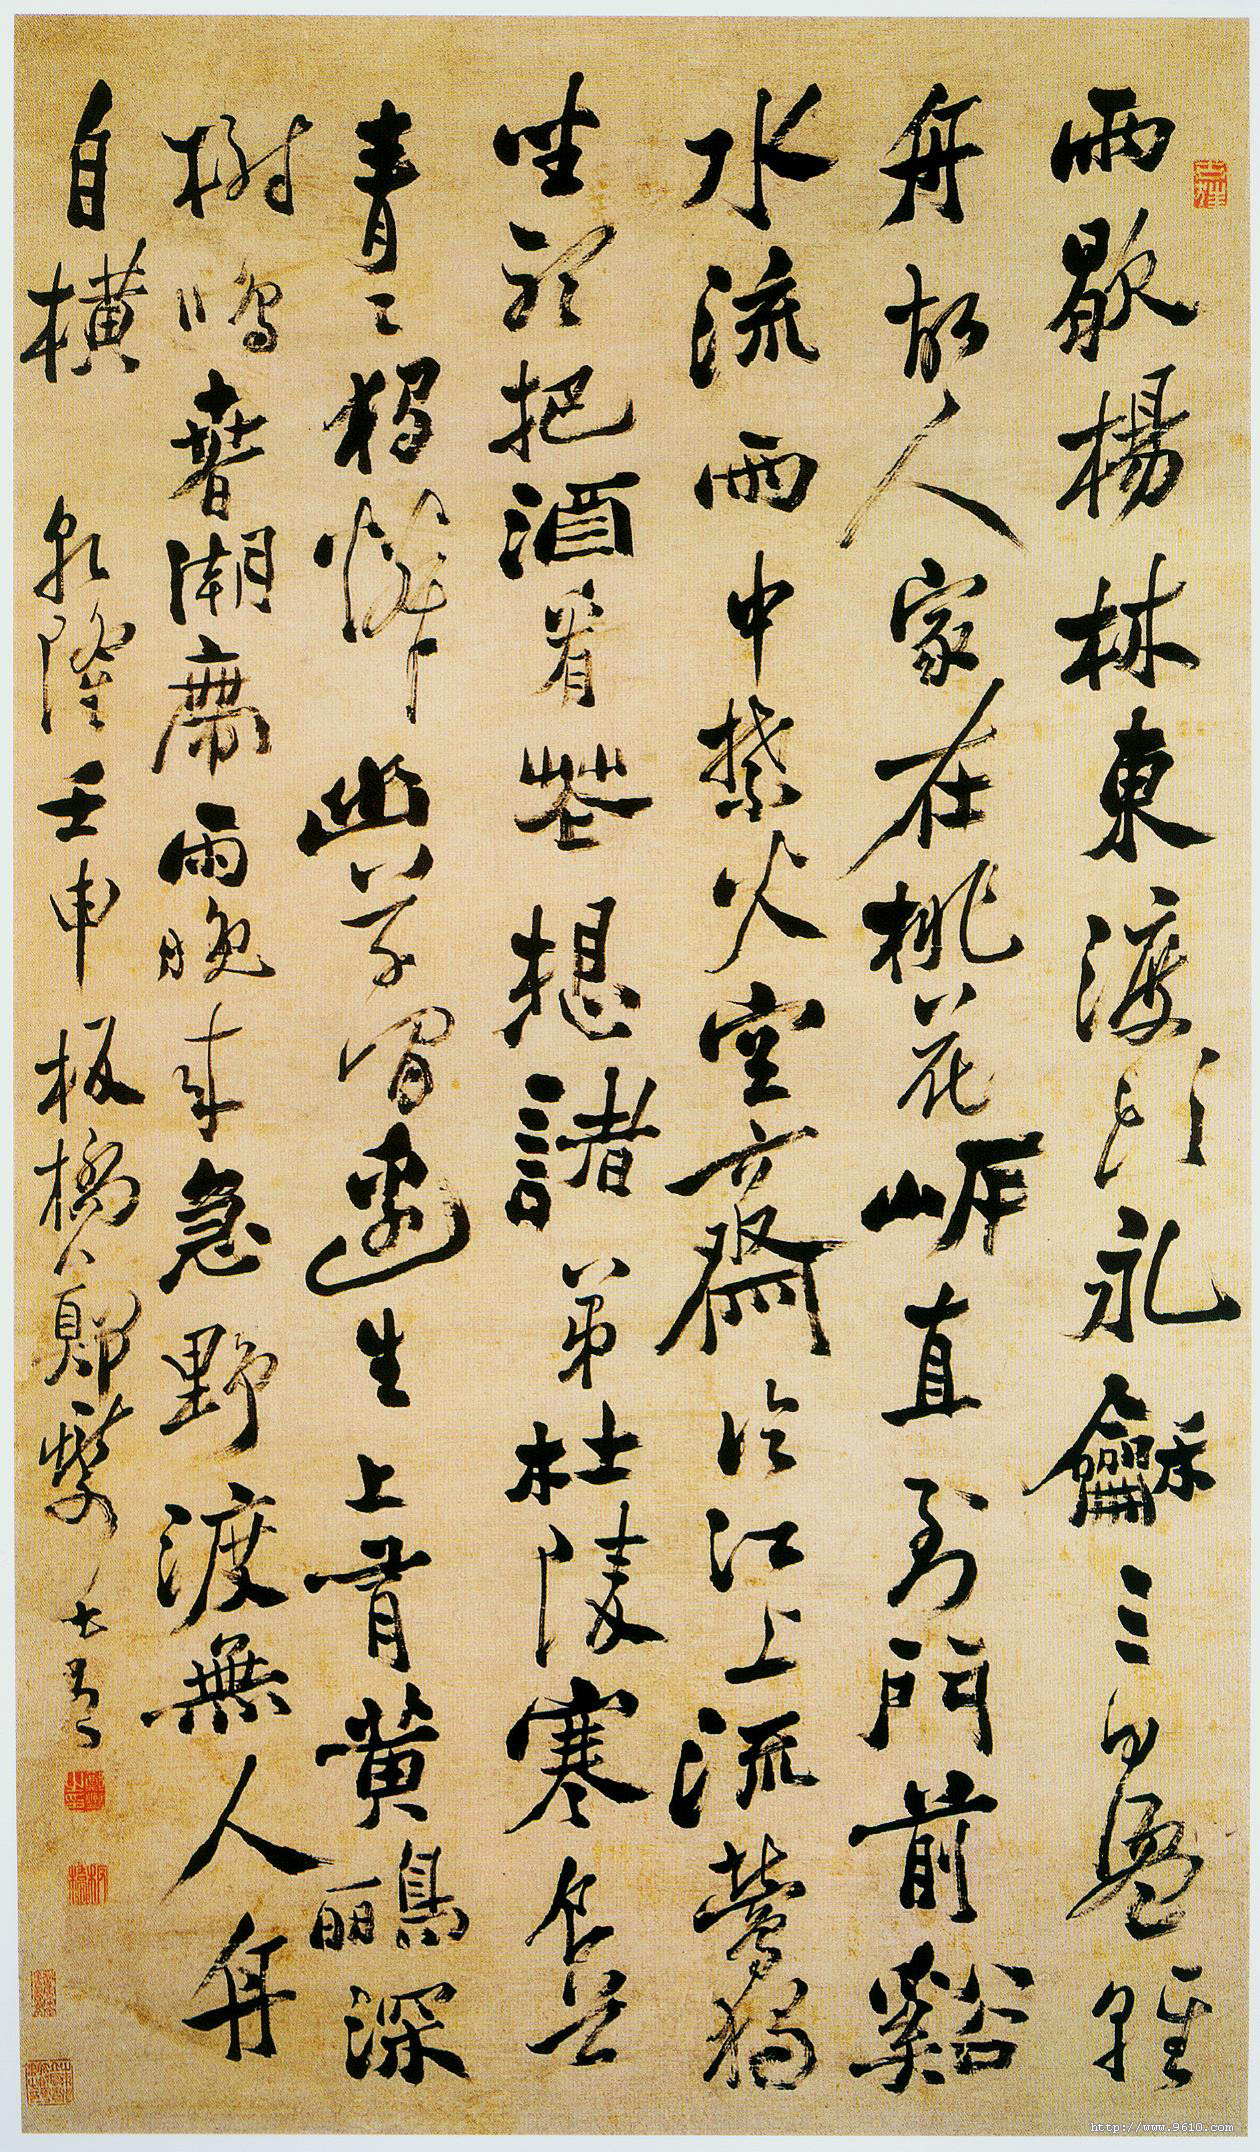 雨歇楊林東渡頭永龢三日盪輕
舟故人家在桃花岍直到門前谿
水流雨中禁火空齋冷江上流鶯獨
坐聽把酒看花想諸弟杜陵寒食草
青〻獨憐幽草澗邊生上有黄鸝深
樹鳴春潮帶雨晚來急野渡無人舟
自橫 乾隆壬申 板橋鄭燮書
http://www.9610.com